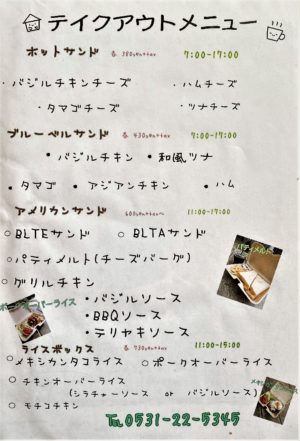 テイクアウトメニュー
ホットサンド 各 380yen+tax 7:00-17:00
・バジルチキンチーズ ・ハムチーズ
・タマゴチーズ ・ツナチーズ
ブルーベルサンド 各 430yen+tax 7:00-17:00
・バジルチキン ・和風ツナ
・タマゴ ・アジアンチキン ・ハム
アメリカンサンド 600yen+tax~ 11:00-17:00
○BLTEサンド ○BLTAサンド
○パティメルト(チーズバーグ)
パティメルト
○グリルチキン
・バジルソース
・BBQソース
・テリヤキソース
ポークオーバーライス
ライスボックス 各 730yen+tax 11:00-15:00
○メキシカンタコライス ○ポークオーバーライス
○チキンオーバーライス
(シラチャーソース or バジルソース)
○モチコチキン
TEL 0531-22-5345